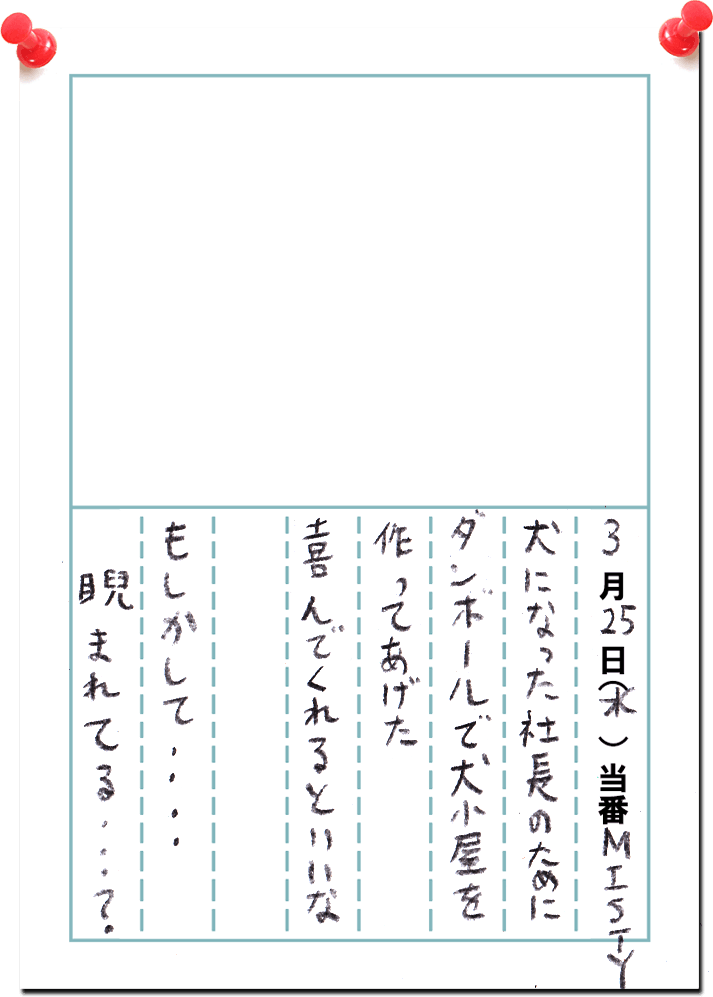 3月25日(水)当番MISTY
犬になった社長のために
ダンボールで犬小屋を
作ってあげた
喜んでくれるといいな
もしかして・・・・
睨まれてる・・・て。